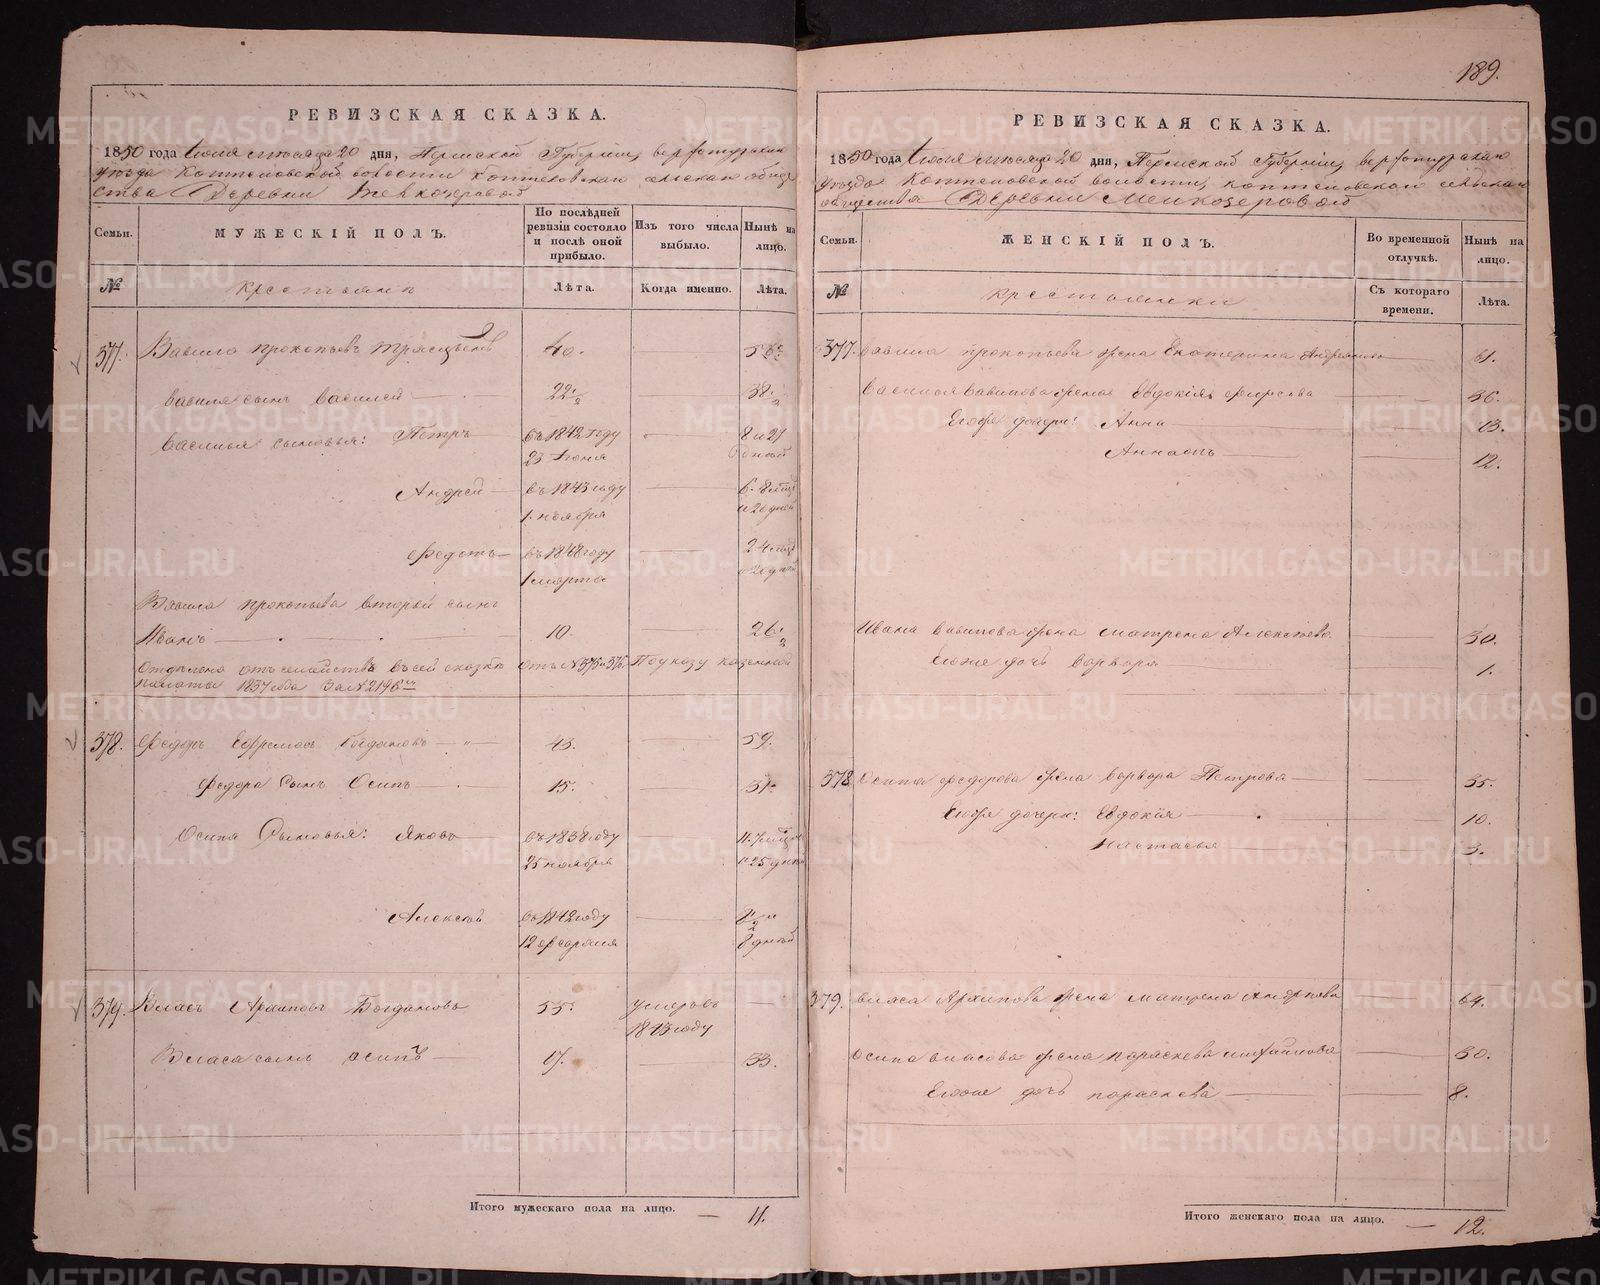 189.
РЕВИЗСКАЯ СКАЗКА.
1850 года Июня месяца 20 дня, Пермской Губернии, верхотурскаго
уезда Коптеловской волости коптеловскаго сельскаго общес
ства Деревни
Семьи.
МУЖЕСКІЙ ПОЛЪ.
По послѣдней ревизіи состояло и послѣ оной прибыло.
Изъ того числа выбыло.
Нынѣ на лицо.
№
Крестьянъ
Лѣта.
Когда именно.
Лѣта.
377. Вавило прокопьевъ 40. 56
вавила сынъ Василей 22 38
Василья сыновья: Петръ въ 1842 году 8 и 27
23 Июня дней
Андрей въ 1843 году 6. 8 мцъ
1. ноября и 20 дней
Федотъ въ 1848 году 2 4 мцъ
1 марта и 20 дней
Вавила прокопьева второй сынъ
Иванъ 10. 26.
Отделено отъ семействъ въ сей сказке отъ №375 и 376. По указу казенной
палаты 1837 года За №2196
378. Федоръ Ефремовъ Богдановъ 43. 59.
Федора Сынъ Осипъ 15. 31.
Осипа Сыновья: Яковъ въ 1838 году 11. 7 мцъ
25 ноября и 25 дней
Алексей въ 1842 году 8 и
12 февраля 8 дней
379. Власъ Архиповъ Богдановъ 55. умеръ въ
1843 году
Власа сынъ осипъ 17. 33.
Итого мужескаго пола на лицо. — 11.
РЕВИЗСКАЯ СКАЗКА.
1850 года Июня месяца 20 дня, Пермской Губернии, верхотурскаго
уезда Коптеловской волости, коптеловскаго сельскаго
общества Деревни Мелкозеровой
Семьи.
ЖЕНСКІЙ ПОЛЪ.
Во временной отлучкѣ.
Нынѣ на лицо.
№
Крестьянки
Съ котораго времени.
Лѣта.
377. Вавила прокопьева жена Екатерина Андреянова 61.
Василья Вавилова жена Евдокия 36.
Егоже дочери: Анна 13.
12.
Ивана вавилова жена матрена Алексеева 30.
Егоже дочь варвара 1.
378 Осипа федорова жена варвара Петрова 35.
Егоже дочери: Евдокия 10.
настасья 3.
379. власа Архипова жена матрена Андреева 64.
Осипа власова жена параскева михайлова 30.
Егоже дочь параскева 8.
Итого женскаго пола на лицо. — 12.
METRIKI.GASO-URAL.RU